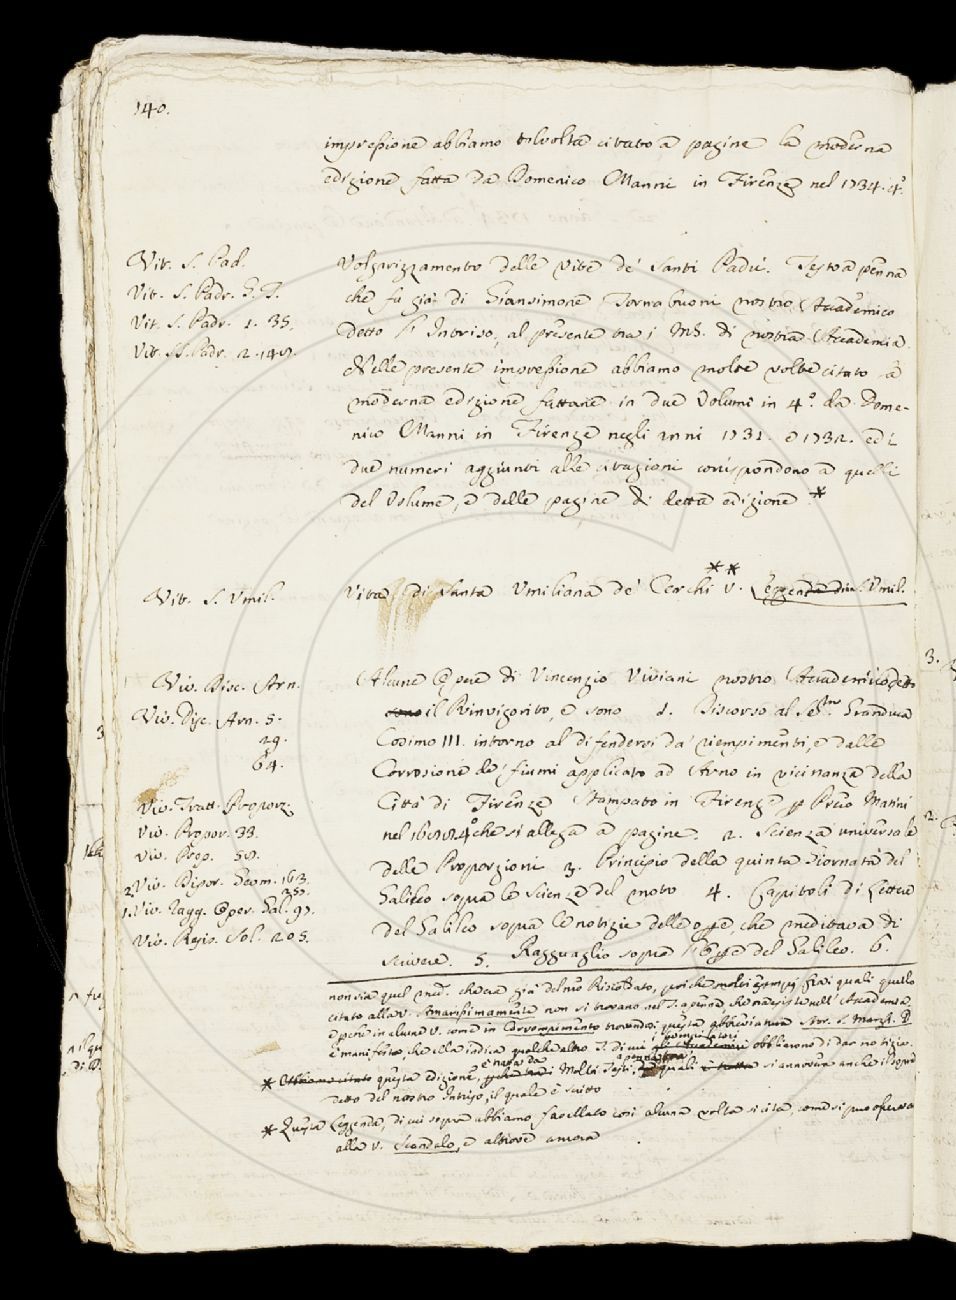 140.
impressione abbiamo talvolta citato a pagine la moderna
edizione fatta da Domenico Manni in Firenze nel 1734. 4.º
Vit. S. Pad.
Vit. S. Padr. G. S.
Vit. S. Padr. 1. 35.
Vit. SS. Padr. 2. 149.
Volgarizzamento delle vite de' Santi Padri. Testo a penna
che fu già di Giansimone Tornabuoni nostro Accademico
detto l'Intriso, al presente tra i MS. di nostra Accademia
Nelle presente impressione abbiamo molte volte citato la
moderna edizione fattane in due Volumi in 4.º da Dome-
nico Manni in Firenze negli anni 1731. e 1732. ed i
due numeri aggiunti alle citazioni corrispondono a quelli
del Volume, e delle pagine di detta edizione *
Vit. S. Umil.
Vita di Santa Umiliana de' Cerchi ** V. Leggenda di S. Umil.
Viv. Disc. Arn.
Viv. Disc. Arn. 5.
29.
64.
Viv. Tratt. Proporz.
Viv. Propor. 33.
Viv. Prop. 59.
2 Viv. Dipor. Geom. 163.
257.
1. Viv. Ragg. Oper. Gal. 97.
Viv. Resis. Sol. 205.
Alcune Opere di Vincenzio Viviani nostro Accademico detto
sono il Rinvigorito, e sono 1. Discorso al Ser.mo Granduca
Cosimo III. intorno al difendersi da' riempimenti, e dalle
Corrosione de' fiumi applicato ad Arno in vicinanza della
Città di Firenze Stampato in Firenze p Piero Matini
che si allega a pagine. 2. Scienza universale
delle Proporzioni 3. Principio della quinta Giornata del
Galileo sopra le Scienze del moto 4. Capitoli di Lettere
del Galileo sopra le notizie delle opere, che meditava di
scrivere. 5. Ragguaglio sopra l'opere del Galileo. 6.
non sia quel med. che era già del nro Ridolfato, poiche molti esempj fra i quali quello
citato alla V. Amarissimamente non si trovano nel T. a penna, che ora esiste nell'Accademia
e però in alcune V. come in Corrompimento trovandosi questa abbreviatura
è manifesto, che ella indica qualche altro T. di cui i compilatori gli Accademici obbliarono di dar notizia.
* Abbiamo citato questa edizione, è nata da Molti Testi, a penna tra quali si annovera anche il sopra
detto del nostro Intriso, il quale è scritto
* Questa Leggenda, di cui sopra abbiamo favellato così alcuna volta si cita, come si può osservare
alla V. Scandalo, e altrove ancora
3.
2.